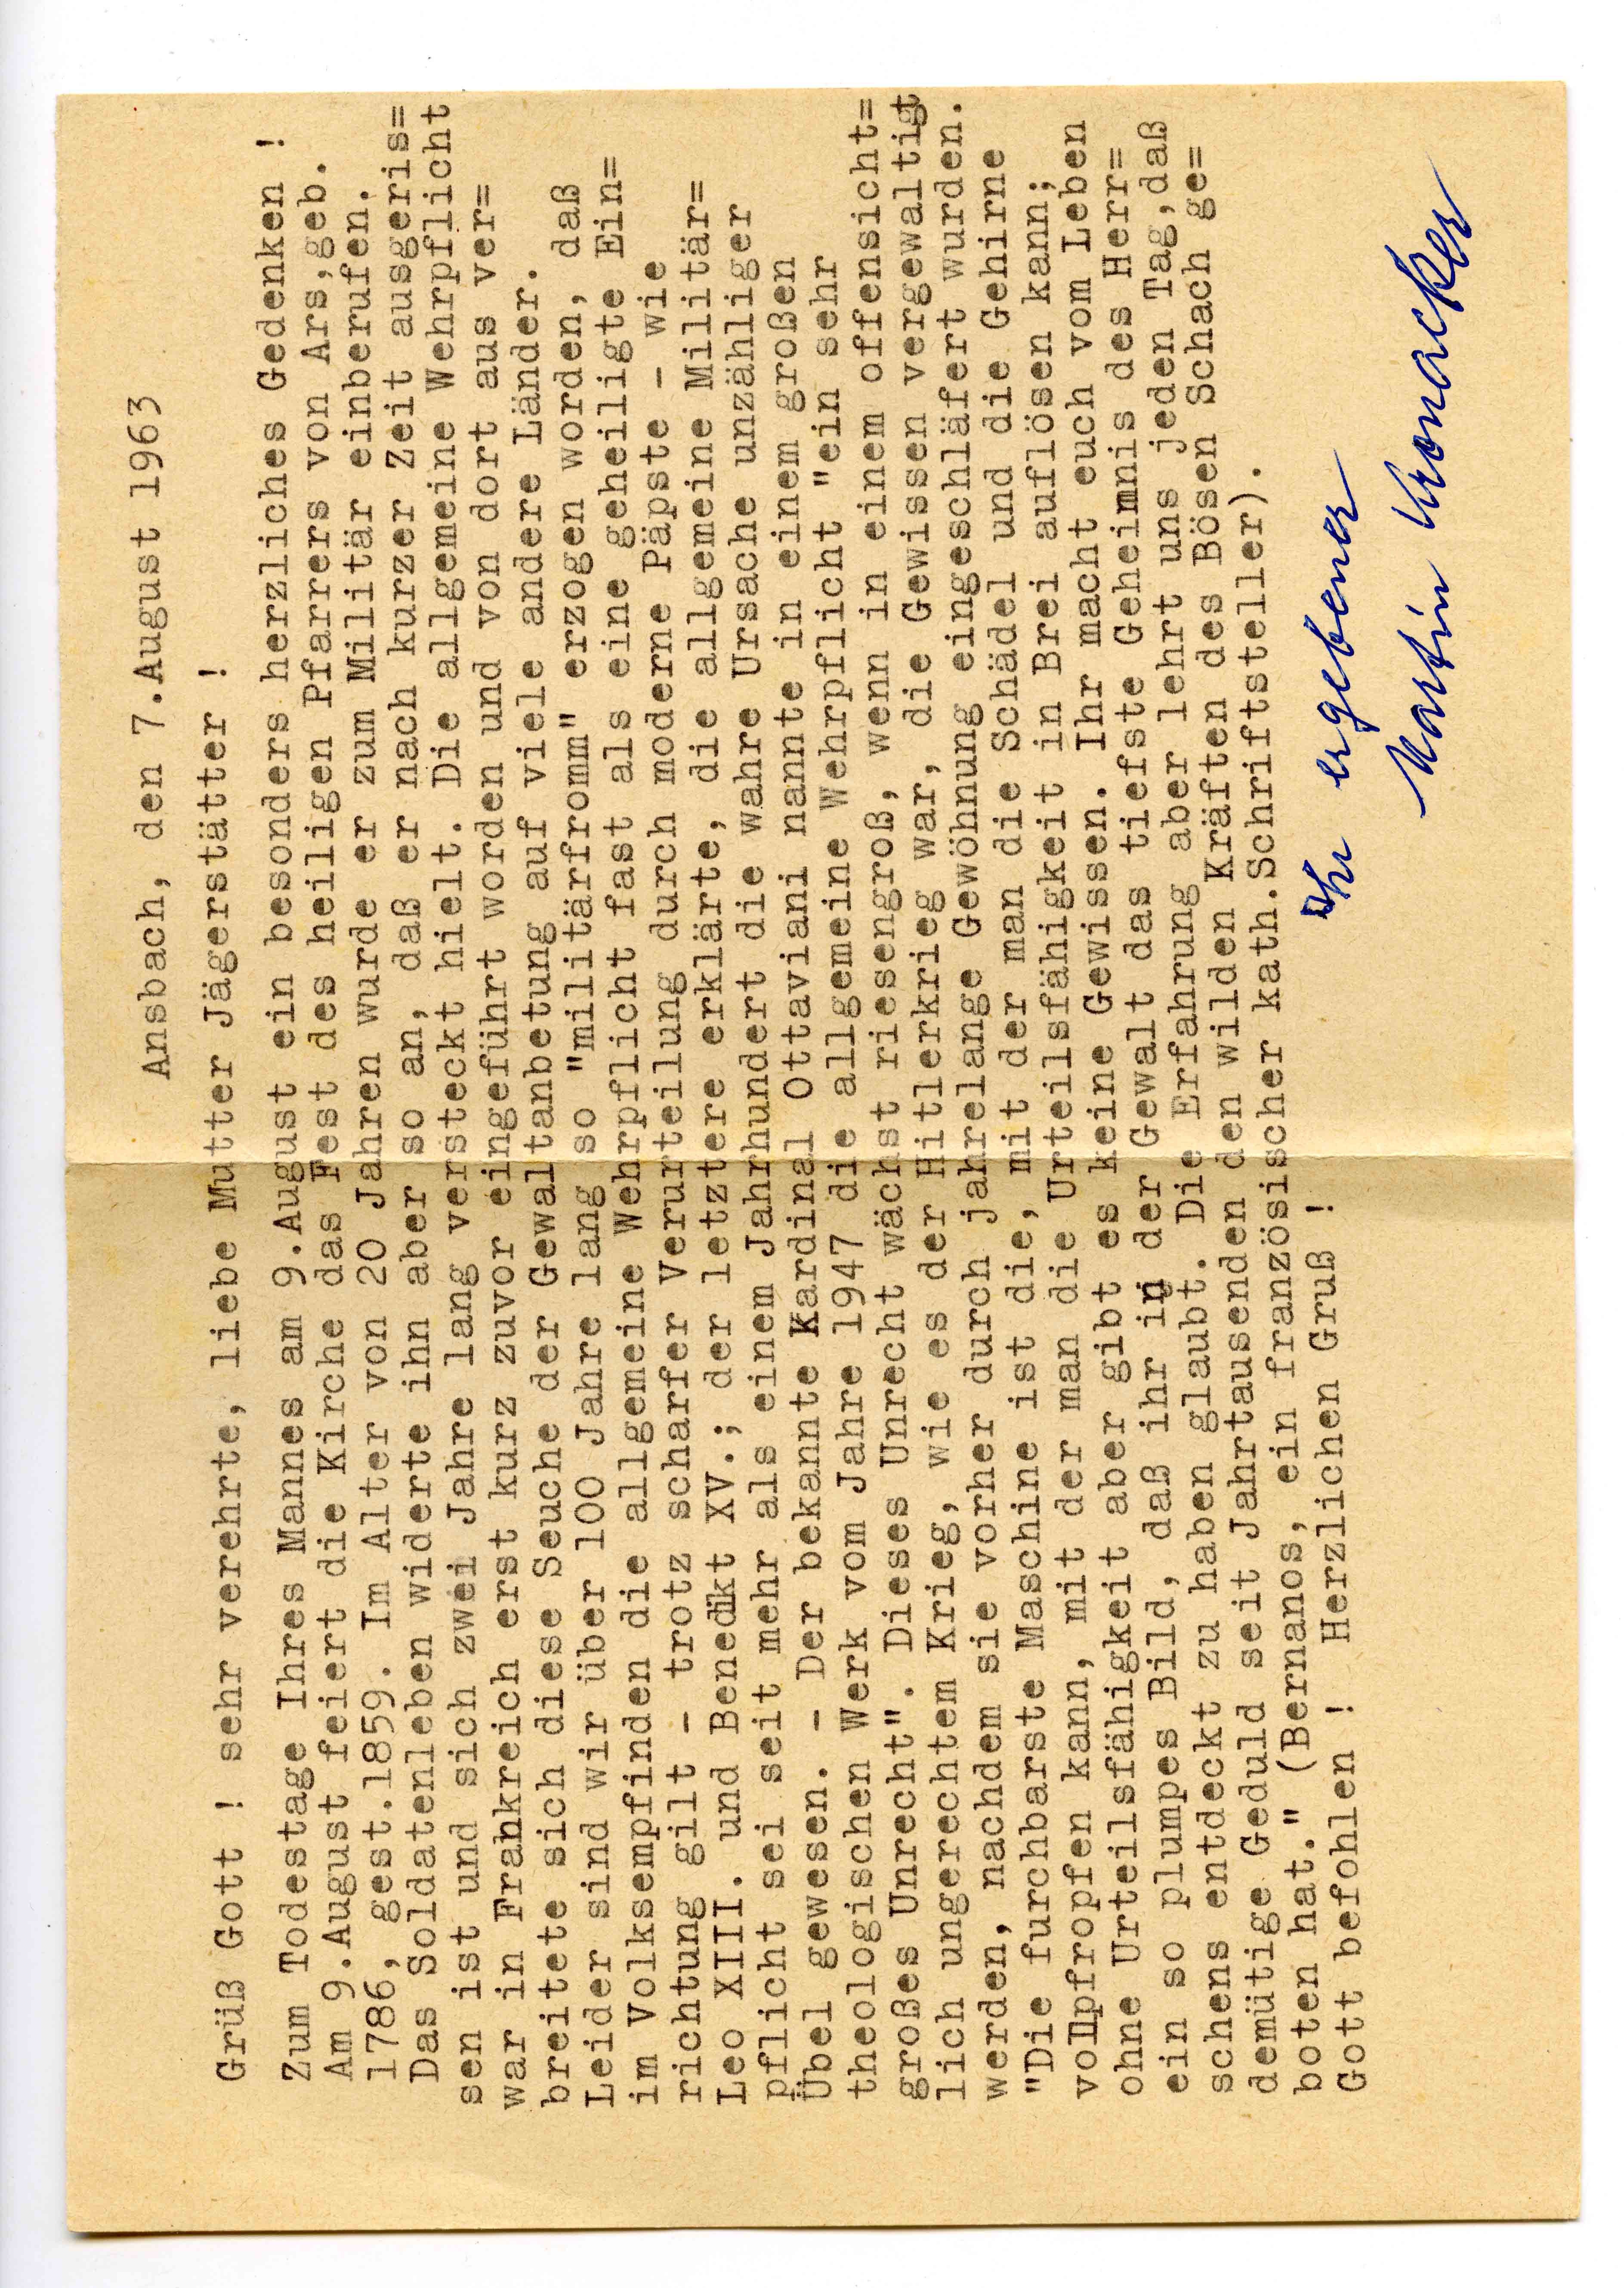 Ansbach, den 7.August 1963
Grüß Gott ! sehr verehrte, liebe Mutter Jägerstätter !
Zum Todestage Ihres Mannes am 9.August ein besonders herzliches Gedenken !
Am 9.August feiert die Kirche das Fest des heiligen Pfarrers von Ars,geb.
1786, gest.1859. Im Alter von 20 Jahren wurde er zum Militär einberufen.
Das Soldatenleben widerte ihn aber so an, daß er nach kurzer Zeit ausgeris=
sen ist und sich zwei Jahre lang versteckt hielt. Die allgemeine Wehrpflicht
war in Frankreich erst kurz zuvor eingeführt worden und von dort aus ver=
breitete sich diese Seuche der Gewaltanbetung auf viele andere Länder.
Leider sind wir über 100 Jahre lang so "militärfromm" erzogen worden, daß
im Volksempfinden die allgemeine Wehrpflicht fast als eine geheiligte Ein=
richtung gilt - trotz scharfer Verurteilung durch moderne Päpste - wie
Leo XIII. und Benedikt XV.; der letztere erklärte, die allgemeine Militär=
pflicht sei seit mehr als einem Jahrhundert die wahre Ursache unzähliger
Übel gewesen. - Der bekannte Kardinal Ottaviani nannte in einem großen
theologischen Werk vom Jahre 1947 die allgemeine Wehrpflicht "ein sehr
großes Unrecht". Dieses Unrecht wächst riesengroß, wenn in einem offensicht=
lich ungerechtem Krieg, wie es der Hitlerkrieg war, die Gewissen vergewaltigt
werden, nachdem sie vorher durch jahrelange Gewöhnung eingeschläfert wurden.
"Die furchbarste Maschine ist die, mit der man die Schädel und die Gehirne
vollpfropfen kann, mit der man die Urteilsfähigkeit in Brei auflösen kann;
ohne Urteilsfähigkeit aber gibt es keine Gewissen. Ihr macht euch vom Leben
ein so plumpes Bild, daß ihr in der Gewalt das tiefste Geheimnis des Herr=
schens entdeckt zu haben glaubt. Die Erfahrung aber lehrt uns jeden Tag,daß
demütige Geduld seit Jahrtausenden den wilden Kräften des Bösen Schach ge=
boten hat." (Bernanos, ein französischer kath.Schriftsteller).
Gott befohlen ! Herzlichen Gruß !
Ihr ergebener
Martin Kronacker